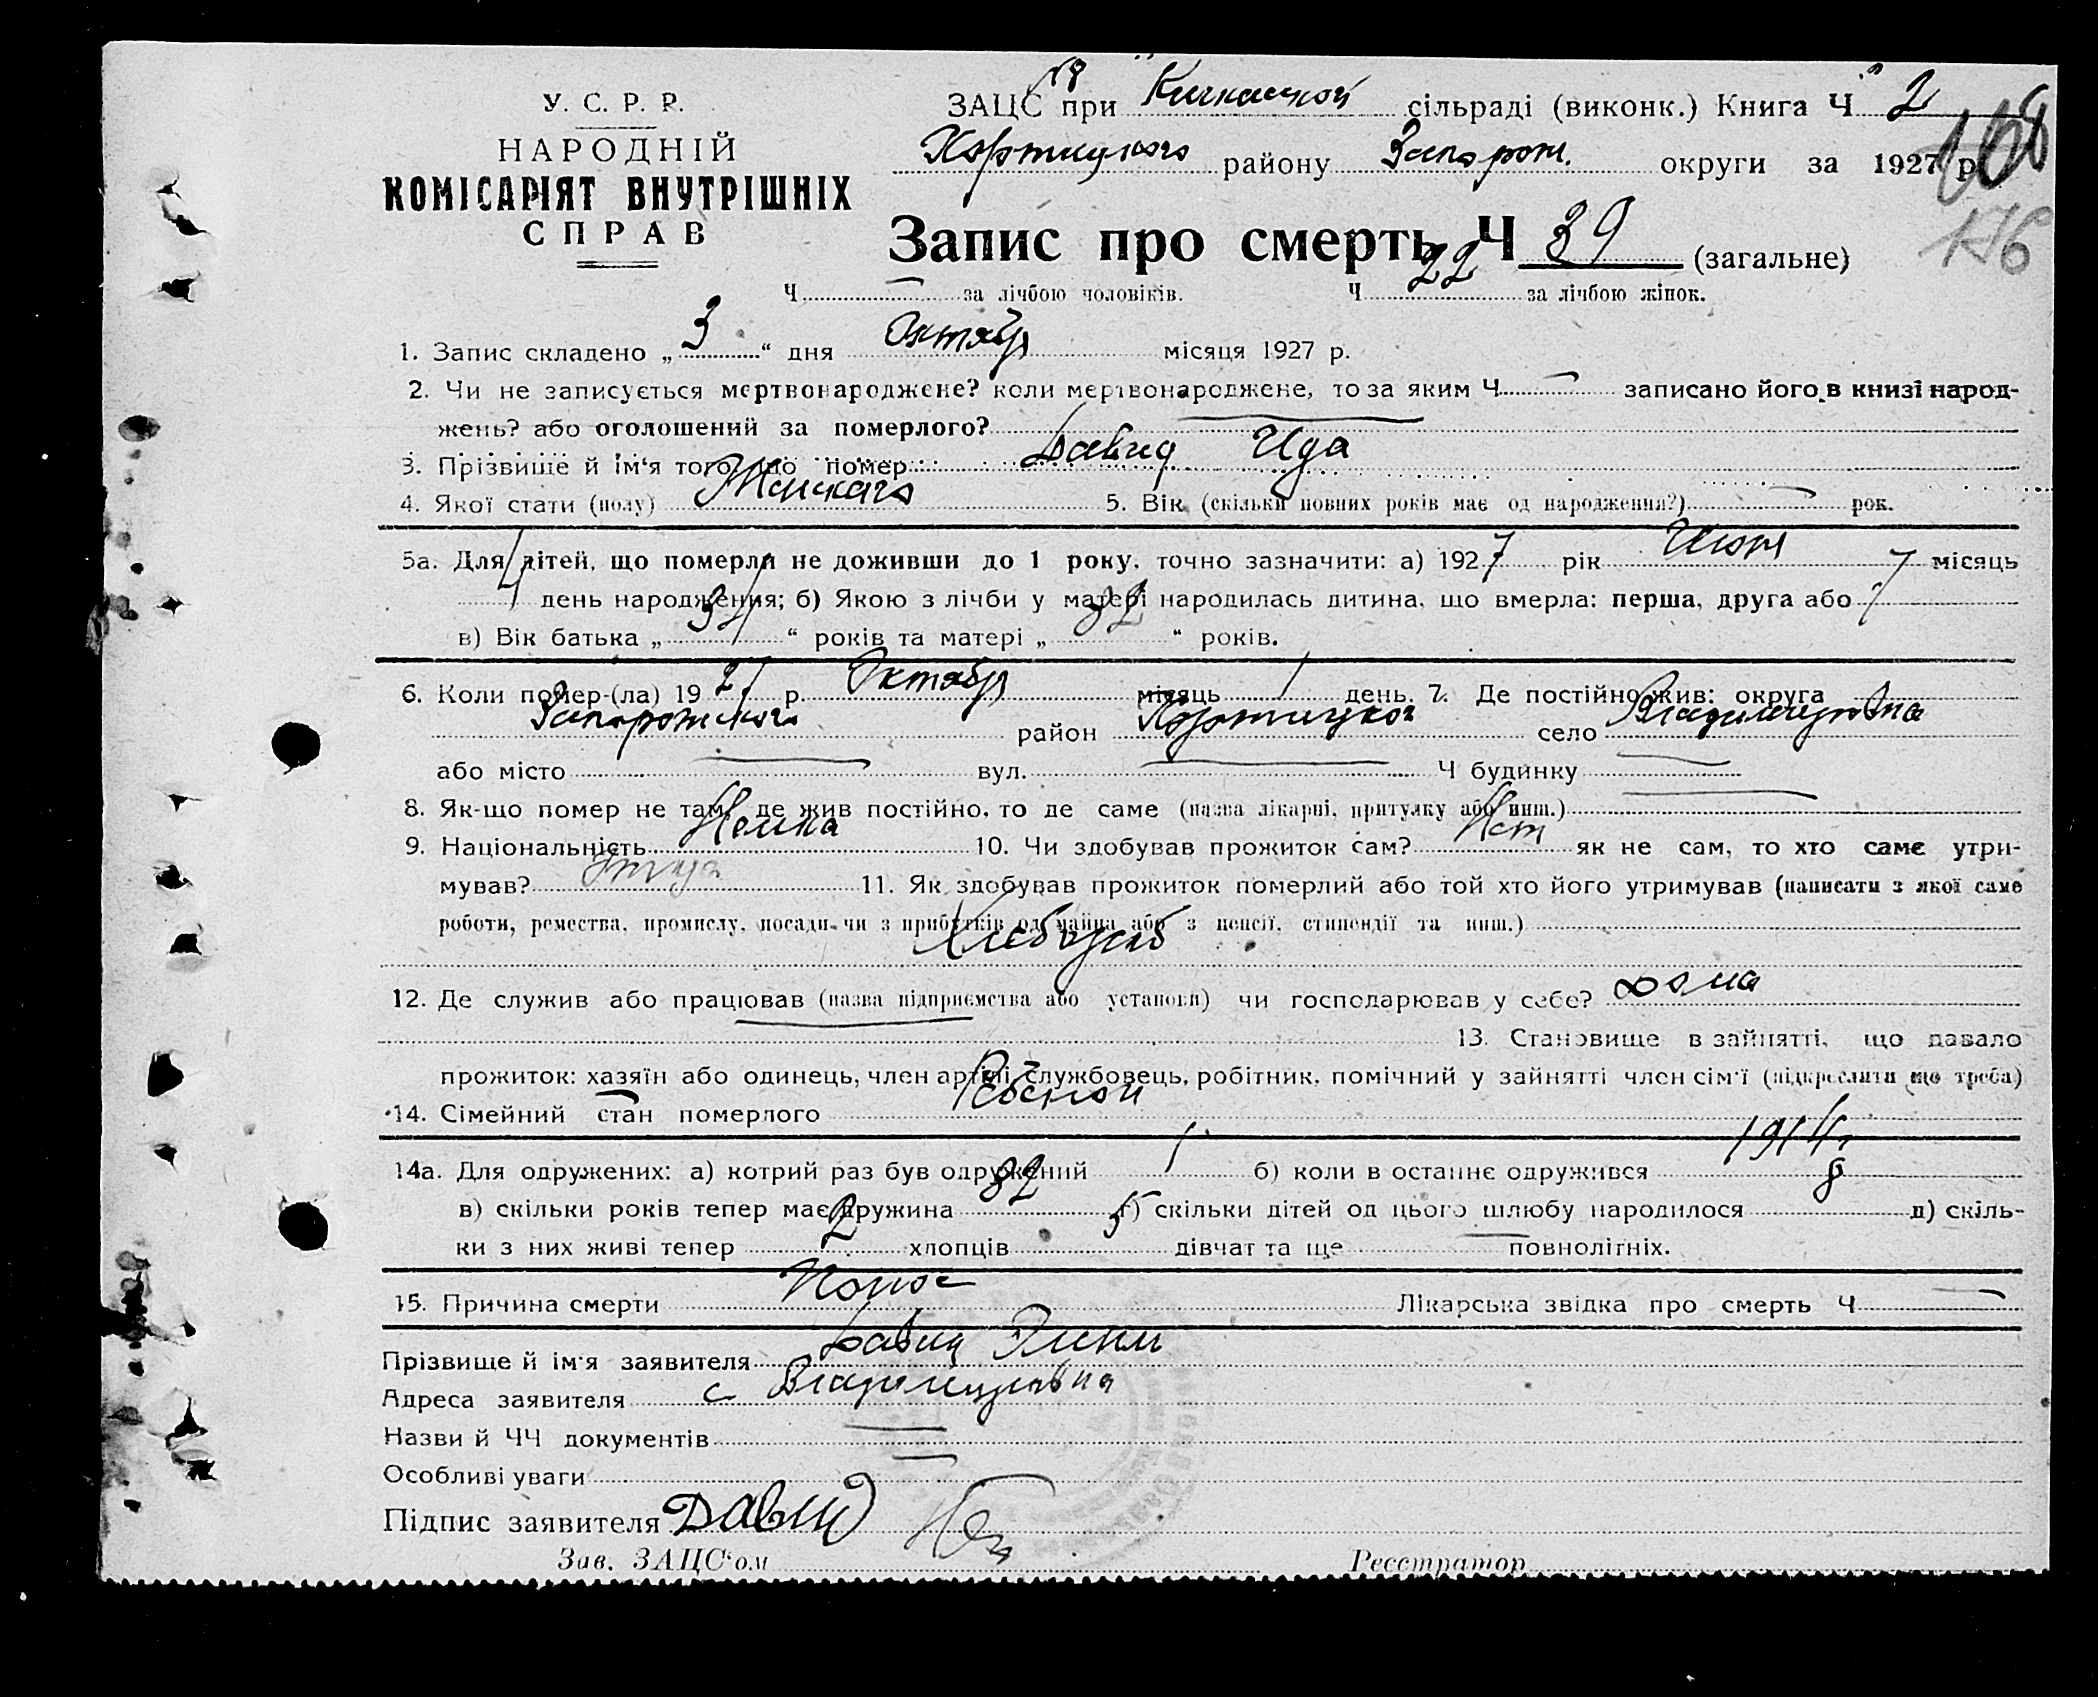 У. С. Р. Р.
НАРОДНІЙ
КОМІСАРІЯТ ВНУТРІШНІХ
СПРАВ
ЗАЦС при Кичкасской сільраді (виконк.) Книга Ч 2
Хортицкого району Запорож. округи за 1927 р.
168
176
Запис про смерть Ч 39 (загальне)
Ч — за лічбою чоловіків. Ч 22 за лічбою жінок.
1. Запис складено „3“ дня Октябр місяця 1927 р.
2. Чи не записується мертвонароджене? коли мертвонароджене, то за яким Ч — записано його в книзі народ-
жень? або оголошений за померлого? —
3. Прізвище й ім'я того, що помер Давид Ида
4. Якої стати (полу) Женского 5. Вік (скільки повних років має од народження?) — рок.
5а. Для дітей, що померли не доживши до 1 року, точно зазначити: а) 1927 рік Июн 7 місяць
4 день народження; б) Якою з лічби у матері народилась дитина, що вмерла: перша, друга або 7
в) Вік батька „37“ років та матері „32“ років.
6. Коли помер-(ла) 1927 р. Октябр місяць 1 день. 7. Де постійно жив: округа
Запорожского район Хортицкого село Владимировка
або місто — вул. — Ч будинку —
8. Як-що помер не там, де жив постійно, то де саме (назва лікарні, притулку або инш.) —
9. Національність Немка 10. Чи здобував прожиток сам? Нет як не сам, то хто саме утри-
мував? Отца 11. Як здобував прожиток померлий або той хто його утримував (написати з якої саме
роботи, ремества, промислу, посади чи з прибутків од майна або з пенсії, стипендії та инш.)
Хлебороб
12. Де служив або працював (назва підприємства або установи) чи господарював у себе? дома
— 13. Становище в зайнятті, що давало
прожиток: хазяїн або одинець, член артілі, службовець, робітник, помічний у зайнятті член сім'ї (підкреслити що треба)
14. Сімейний стан померлого
14а. Для одружених: а) котрий раз був одружений 1 б) коли в останнє одружився 1914 г.
в) скільки років тепер має дружина 32 г) скільки дітей од цього шлюбу народилося 8 д) скіль-
ки з них живі тепер 2 хлопців 5 дівчат та ще — повнолітніх.
15. Причина смерти Понос Лікарська звідка про смерть Ч —
Прізвище й ім'я заявителя Давид
Адреса заявителя с Владимировка
Назви й ЧЧ документів —
Особливі уваги —
Підпис заявителя Давид
Зав. ЗАЦС'ом Реєстратор